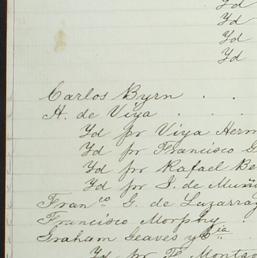 Yd
Yd
Yd
Yd
Carlos Byrn . .
H. de Viya . . .
Yd pr Viya Herm
Yd pr Francisco G
Yd pr Rafael Be
Yd pr S. de Muñ
Franco G. de Luzarrag
Francisco Morphy .
Graham Leaves y Cia
Yd pr Po Montag